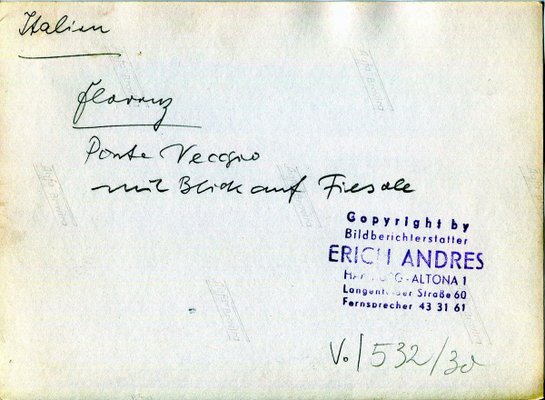 Italien
Florenz
Ponte Veccio
mit Blick auf Fiesole
Copyright by
Bildberichterstatter
ERICH ANDRES
HAMBURG-ALTONA 1
Straße 60
Fernsprecher 43 31 61
V. / 532/30